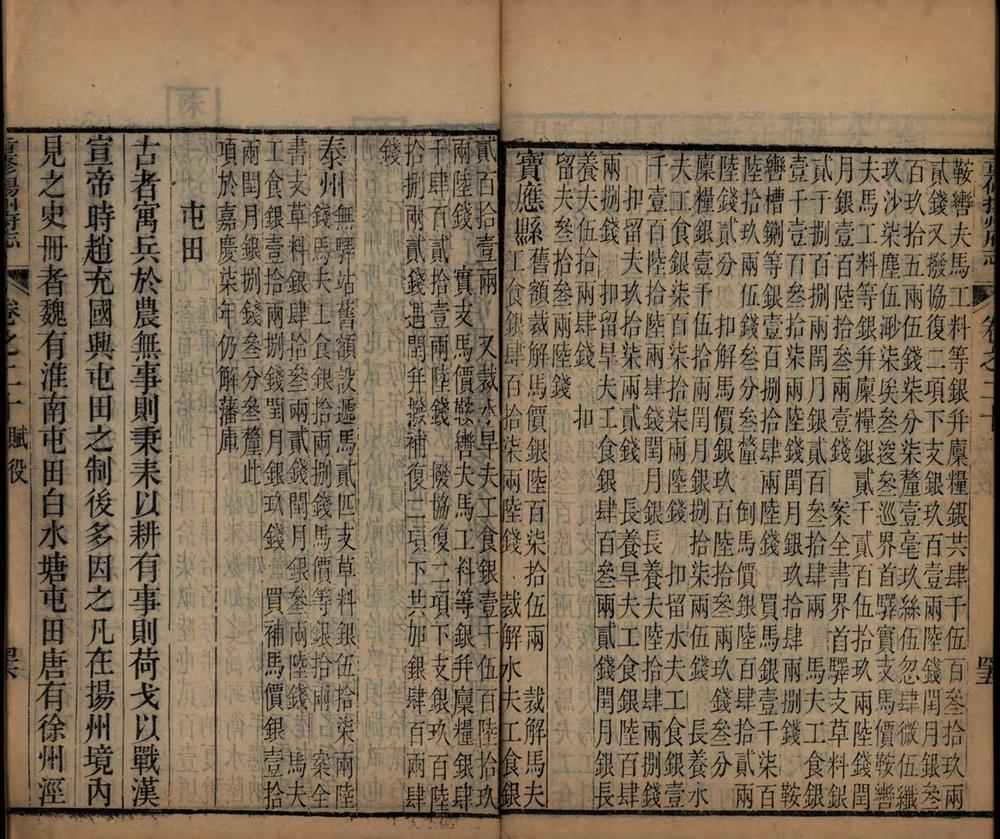 鞍轡夫馬工料等銀幷廩糧銀共肆千伍百叁拾玖兩
貳錢又撥協復二項下支銀玖百壹兩陸錢閏月銀叁
百玖拾五兩伍錢柒分柒釐壹毫玖絲伍忽肆微伍纖
玖沙柒塵伍渺柒埃叁逡叁巡界首驛實支馬價鞍轡
夫馬工料等銀幷廩糧銀貳千貳百伍拾玖兩陸錢閏
月銀壹百陸拾叁兩壹錢 案全書界首驛支草料銀
貳千捌百捌兩閏月銀貳百叁拾肆兩 馬夫工食銀
壹千壹百貳叁拾柒兩陸錢閏月銀玖拾肆兩捌錢 鞍
轡槽鍘等銀壹百捌拾肆兩陸錢 買馬銀壹千柒百
陸拾玖兩伍錢叁分叁釐 倒馬價銀陸百肆拾貳兩
陸錢貳分 扣解馬價銀玖百玖兩玖錢叁分
廩糧銀壹千伍百拾壹兩捌拾柒兩伍錢 長養水
夫工食銀柒百拾柒兩陸錢 扣留水夫工食銀壹
千陸百陸拾陸兩肆錢閏月銀長養夫陸拾肆兩捌錢
扣留夫玖拾柒兩貳錢 長養旱夫工食銀陸百肆
兩捌錢 扣留旱夫工食銀肆百叁兩貳錢閏月銀長
養夫伍拾兩肆錢 扣
留夫叁拾叁兩陸錢
寶應縣 舊額裁解馬價銀陸百柒拾伍兩 裁解馬夫
工食銀肆百拾柒兩陸錢 裁解水夫工食銀
貳百拾壹兩 又裁水旱夫工食銀壹千伍百陸拾玖
兩陸錢 實支馬價鞍轡夫馬工料等銀幷廩糧銀肆
千肆百貳拾壹兩陸錢 撥協復二項下支銀玖百陸
拾捌兩貳錢遇閏幷撥補復三項下共加銀肆百兩肆
錢
泰州 無驛站舊額設遞馬貳匹支草料銀伍拾柒兩陸
錢馬夫工食銀拾兩捌錢馬價等銀拾兩 案全
書支草料銀肆拾叁兩貳錢閏月銀叁兩陸錢 馬夫
工食銀壹拾兩捌錢閏月銀玖錢 買補馬價銀壹拾
兩閏月銀捌錢叁分叁釐此
項於嘉慶柒年仍解藩庫
屯田
古者寓兵於農無事則秉耒以耕有事則荷戈以戰漢
宣帝時趙充國興屯田之制後多因之凡在揚州境內
見之史冊者魏有淮南屯田白水塘屯田唐有徐州涇
重修揚州府志 卷之二十 賦役